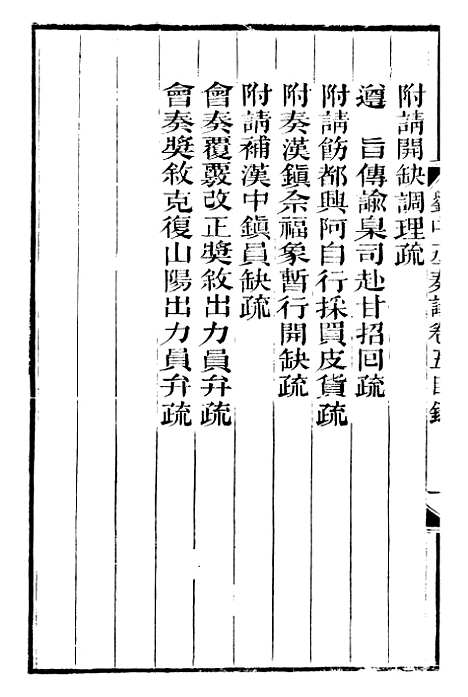 劉中丞奏議卷五目錄
附請開缺調理疏
遵　旨傳諭臬司赴甘招回疏
附請飭都興阿自行採買皮貨疏
附奏漢鎮余福象暫行開缺疏
附請補漢中鎮員缺疏
會奏覆覈改正獎敘出力員弁疏
會奏獎敘克復山陽出力員弁疏